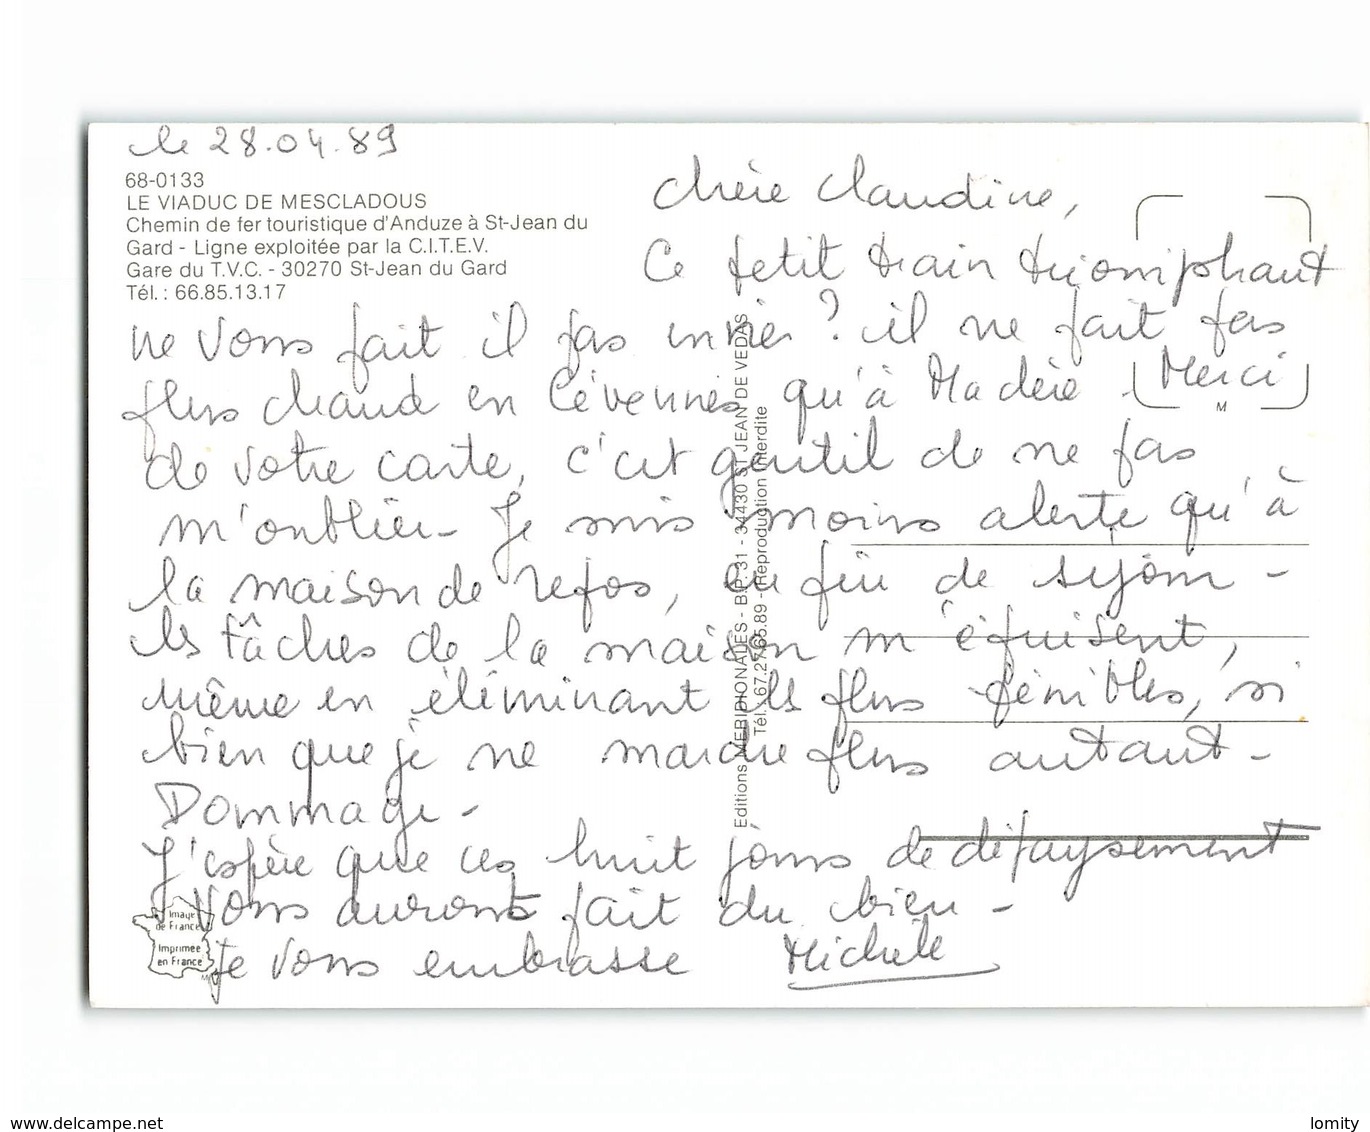 le 28.04.89
68-0133
LE VIADUC DE MESCLADOUS
Chemin de fer touristique d'Anduze à St-Jean du
Gard - Ligne exploitée par la C.I.T.E.V.
Gare du T.V.C. - 30270 St-Jean du Gard
Tél. : 66.85.13.17
Chère Claudine,
Ce petit train triomphant
ne vous fait il pas envie ? il ne fait pas
plus chaud en Cévennes qu'à Madère. Merci
de votre carte, c'est gentil de ne pas
m'oublier - Je suis moins alerte qu'à
la maison de repos, en fin de séjour -
les tâches de la maison m'épuisent,
même en éliminant les plus pénibles, si
bien que je ne marche plus autant -
Dommage -
J'espère que ces huit jours de dépaysement
vous auront fait du bien -
Je vous embrasse Michèle
M
Editions MERIDIONALES - B.P. 31 - 34430 ST JEAN DE VEDAS
Tél. : 67.27.65.89 - Reproduction interdite
Image
de France
Imprimée
en France
www.delcampe.net
lomity